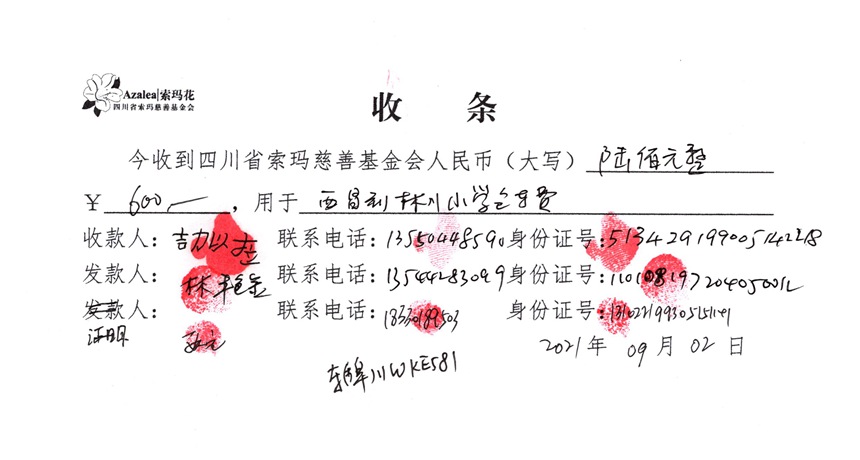 Azalea|索玛花
四川省索玛慈善基金会
收 条
今收到四川省索玛慈善基金会人民币（大写）陆佰元整
￥600.—，用于西昌到林川小学包车费
收款人：吉力以 联系电话：13550448590 身份证号：513429199005142218
发款人：林 联系电话：13544283099 身份证号：
发款人： 联系电话：18330189503 身份证号：
证明
2021年 09月 02日
车牌川WKE581